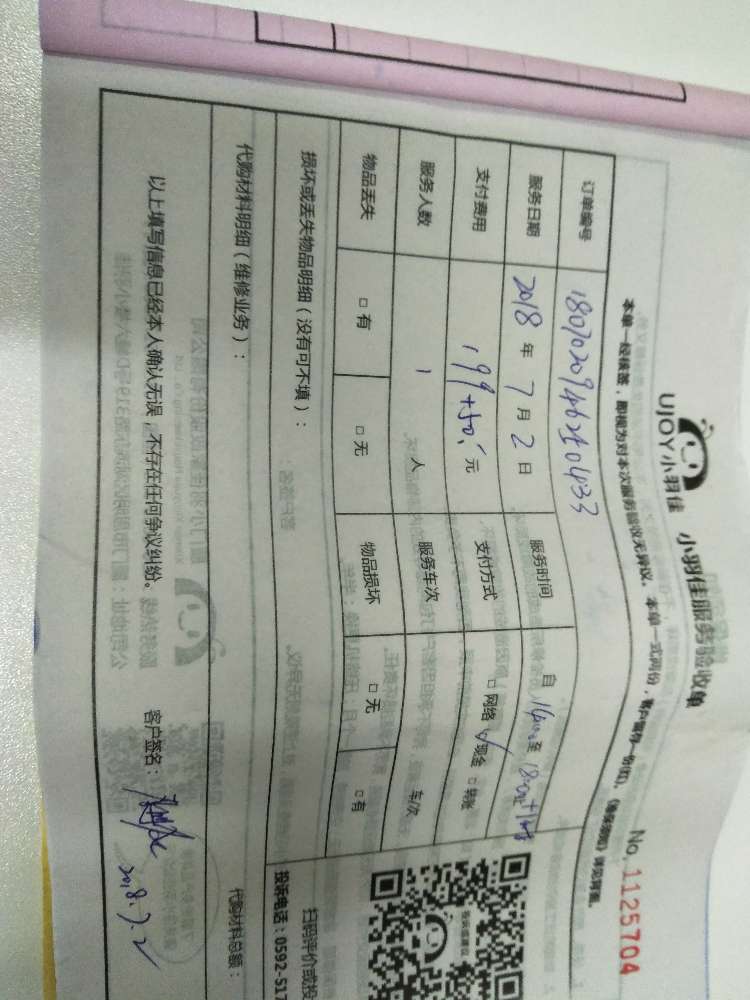 UJOY小羽佳 小羽佳服务验收单 No. 1125704
本单一经核签，即视为对本次服务验收无异议。本单一式两份，客户留存一份(红)。
订单编号 服务时间 自 至 18:00+1时
服务日期 2018 年 7 月 2 日
支付费用 199+50 元 支付方式 □ 网络 现金 □ 转账
服务人数 1 人 服务车次 车/次
物品丢失 □ 有 □ 无 物品损坏 □ 无 □ 有
损坏或丢失物品明细（没有可不填）：
代购材料明细（维修业务）： 代购材料总额：
以上填写信息已经本人确认无误，不存在任何争议纠纷。 客户签名： 2018.7.2
扫码评价或投
投诉电话：0592-517